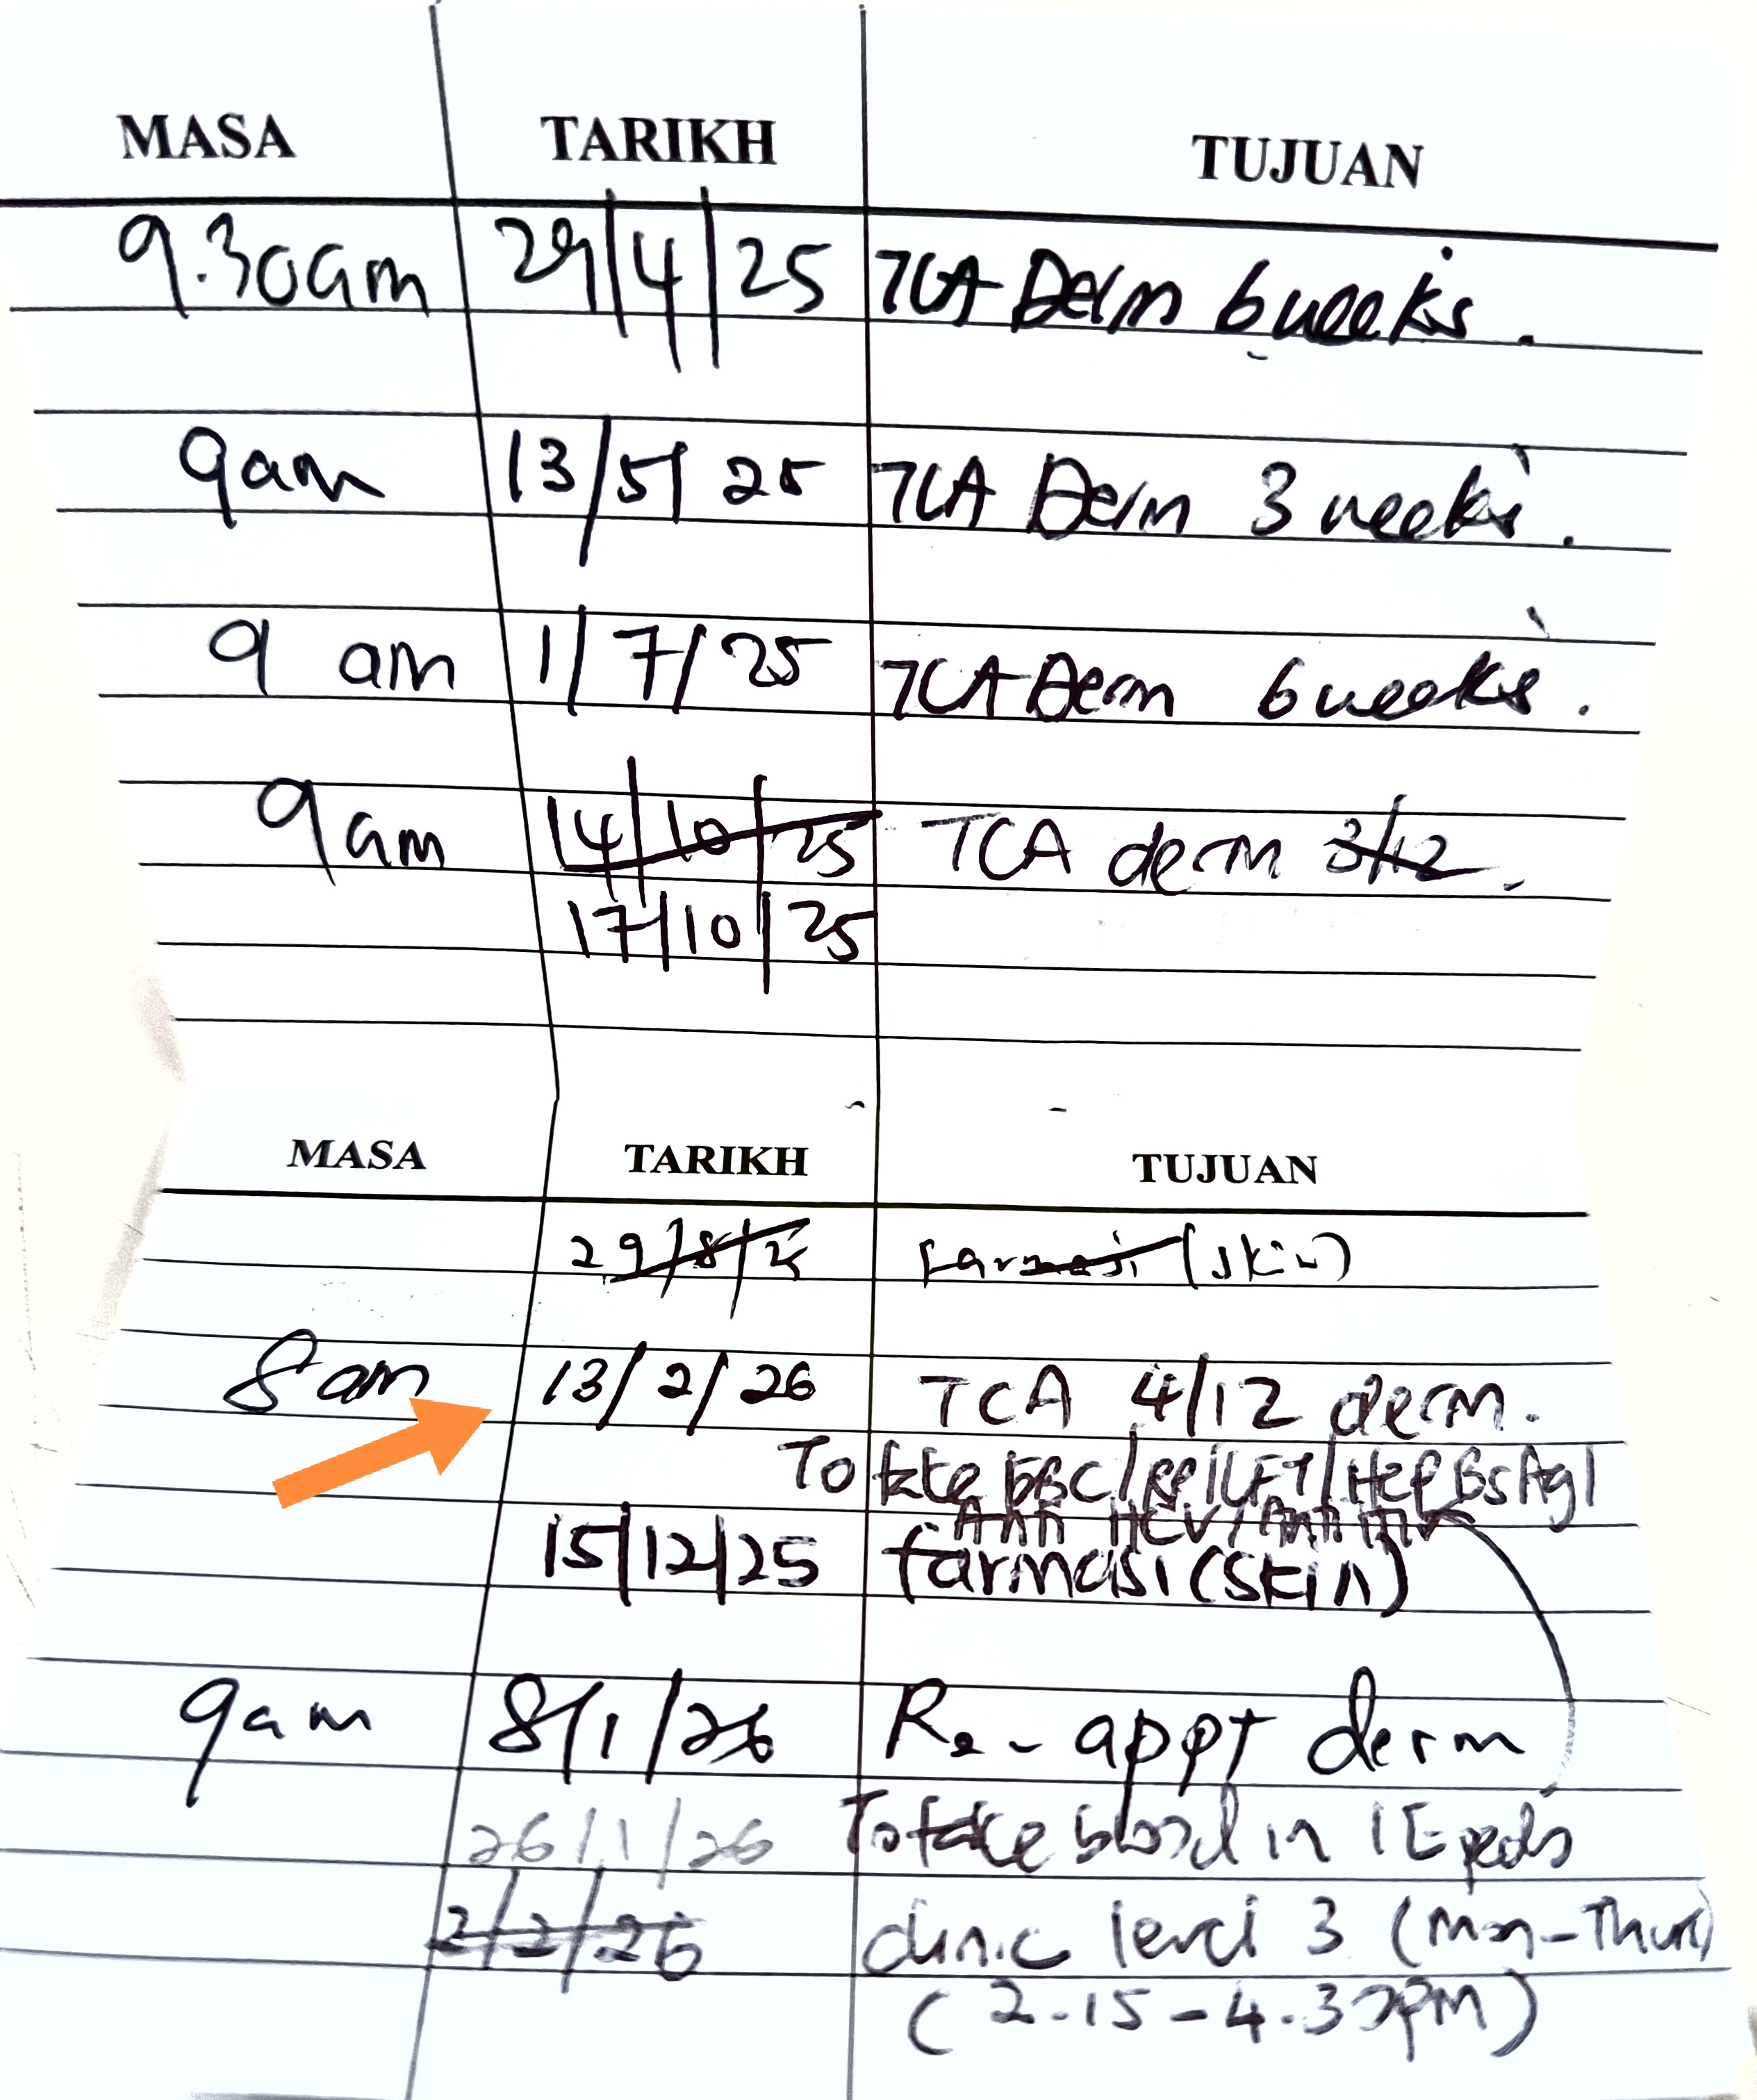 MASA TARIKH TUJUAN
9.30am 29/4/25 TCA Derm 6 weeks.
9am 13/5/25 TCA Derm 3 weeks.
9 am 1/7/25 TCA Derm 6 weeks.
9am 14/10/25 TCA derm 3/12.
17/10/25
MASA TARIKH TUJUAN
29/8/25 Farmasi (skin)
8am 13/2/26 TCA 4/12 derm.
To take FBC/RP/LFT/Hep BsAg/
Anti HCV/Anti HIV
15/12/25 farmasi (skin)
9am 8/1/26 Re-appt derm
26/1/26 To take blood in IE peds
2/2/26 clinic level 3 (Mon-Thurs)
(2.15-4.30pm)